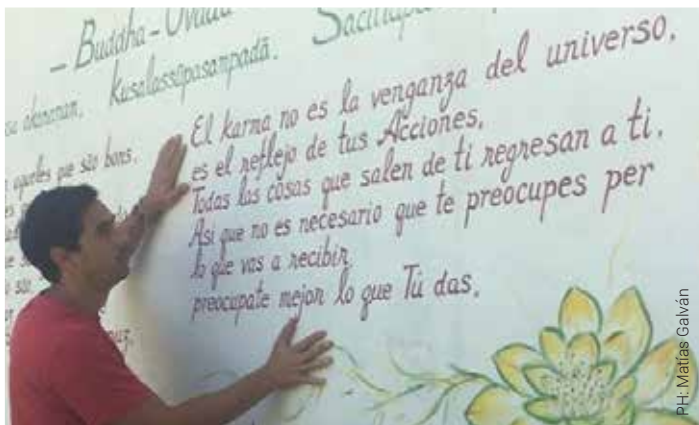 — Buddha-Ovada
akaranan. Kusalassūpasanpadā. Sacittap
aqueles que são bons.
El karma no es la venganza del universo,
es el reflejo de tus Acciones,
Todas las cosas que salen de ti regresan a ti.
Así que no es necesario que te preocupes per
lo que vas a recibir,
preocupate mejor lo que Tú das.
PH: Matías Galván